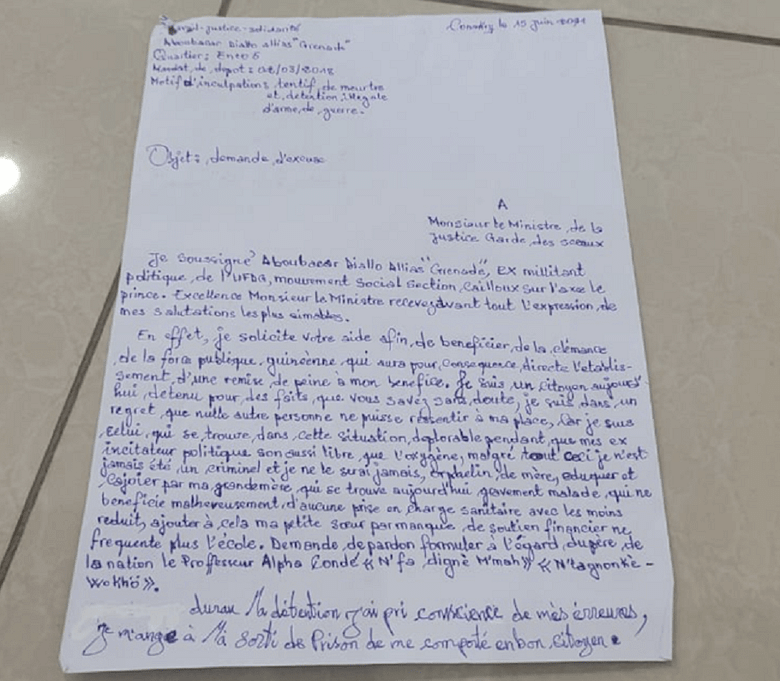 Travail-justice-solidarité
Conakry le 15 juin 2021
Aboubacar Diallo Allias "Grenade"
Quartier: Enco 5
Mandat, de, depot: 02/03/2018
Motif d'inculpations, tentif, de meurtre
et, détention, illegale
d'arme, de, guerre.
Objet: demande d'excuse
A
Monsieur le Ministre, de la
Justice Garde, des sceaux
Je soussigné Aboubacar Diallo Allias "Grenade", EX millitant
politique, de l'UFDG, mouvement Social Section, cailloux sur l'axe le
prince. Excellence Monsieur le Ministre recevez avant tout l'expression, de
mes salutations les plus aimables.
En effet, je solicite votre aide afin, de beneficier, de la clémance
de la force publique, guinéenne, qui aura pour, consequence, directe l'etablis-
sement, d'une remise, de peine à mon benefice. Je suis un citoyen aujourd'
hui, detenu pour, des faits, que vous savez sans, doute, je suis, dans, un
regret, que nulle autre personne ne puisse ressentir à ma place, Car je suis
celui, qui se, trouve, dans, cette situation, deplorable pendant, que mes ex
incitateur politique son aussi libre que l'oxygène, malgré tout ceci je n'est
jamais été, un criminel et je ne le serai jamais, orphelin, de mère, eduquer et
cajoler par ma grandemère, qui se trouve aujourd'hui gravement malade, qui ne
beneficie malheureusement, d'aucune prise en charge sanitaire avec les moins
reduit, ajouter à cela ma petite sœur par manque, de soutien financier ne
frequente plus l'école. Demande, de pardon formuler à l'égard, du père, de
la nation le Proffesseur Alpha Condé « N'fa, digné M'mah » « N'tagnonkè-
Wokhö ».
duran Ma détention j'ai pri conscience de mès érreures,
je m'ange à Ma Sorti de Prison de me comporté en bon, Citoyen.